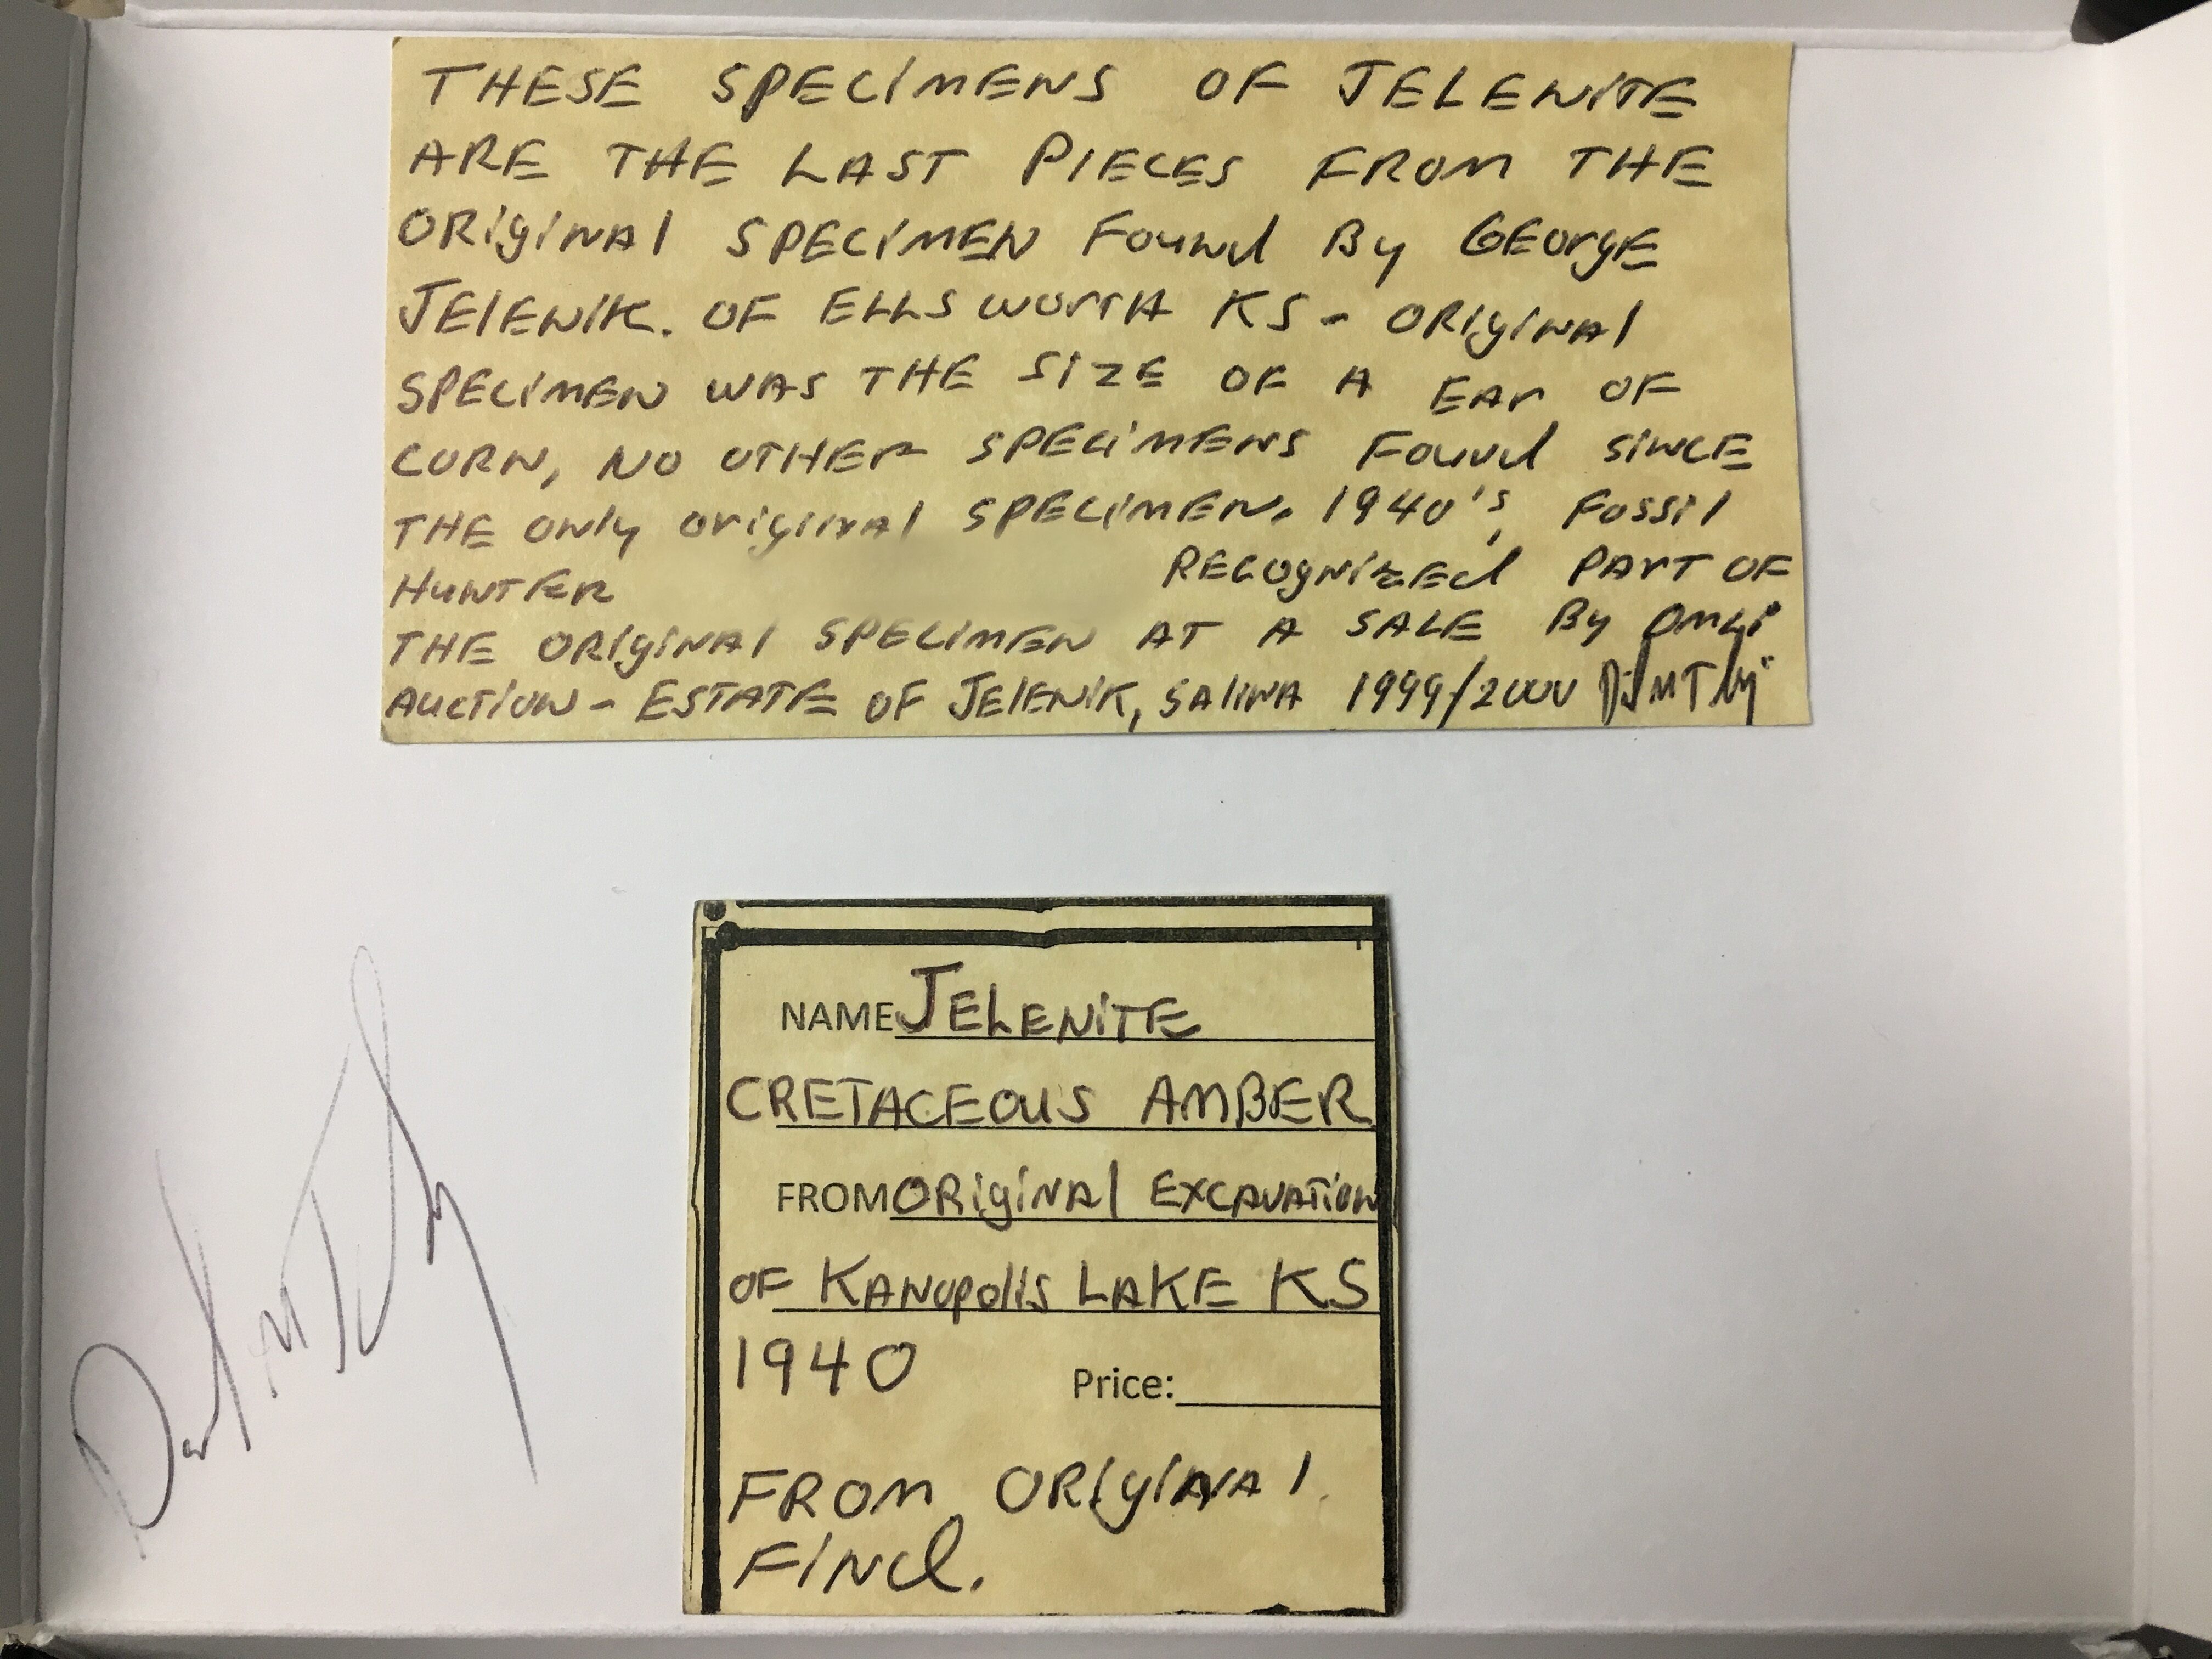 THESE SPECIMENS OF JELENITE
ARE THE LAST PIECES FROM THE
ORIGINAL SPECIMEN FOUND BY GEORGE
JELENIK. OF ELLSWORTH KS - ORIGINAL
SPECIMEN WAS THE SIZE OF A EAR OF
CORN, NO OTHER SPECIMENS FOUND SINCE
THE ONLY ORIGINAL SPECIMEN. 1940's, FOSSIL
HUNTER RECOGNIZED PART OF
THE ORIGINAL SPECIMEN AT A SALE BY
AUCTION - ESTATE OF JELENIK, SALINA 1999/2000
NAME JELENITE
CRETACEOUS AMBER
FROM ORIGINAL EXCAVATION
OF KANOPOLIS LAKE KS
1940 Price:
FROM ORIGINAL
FIND.